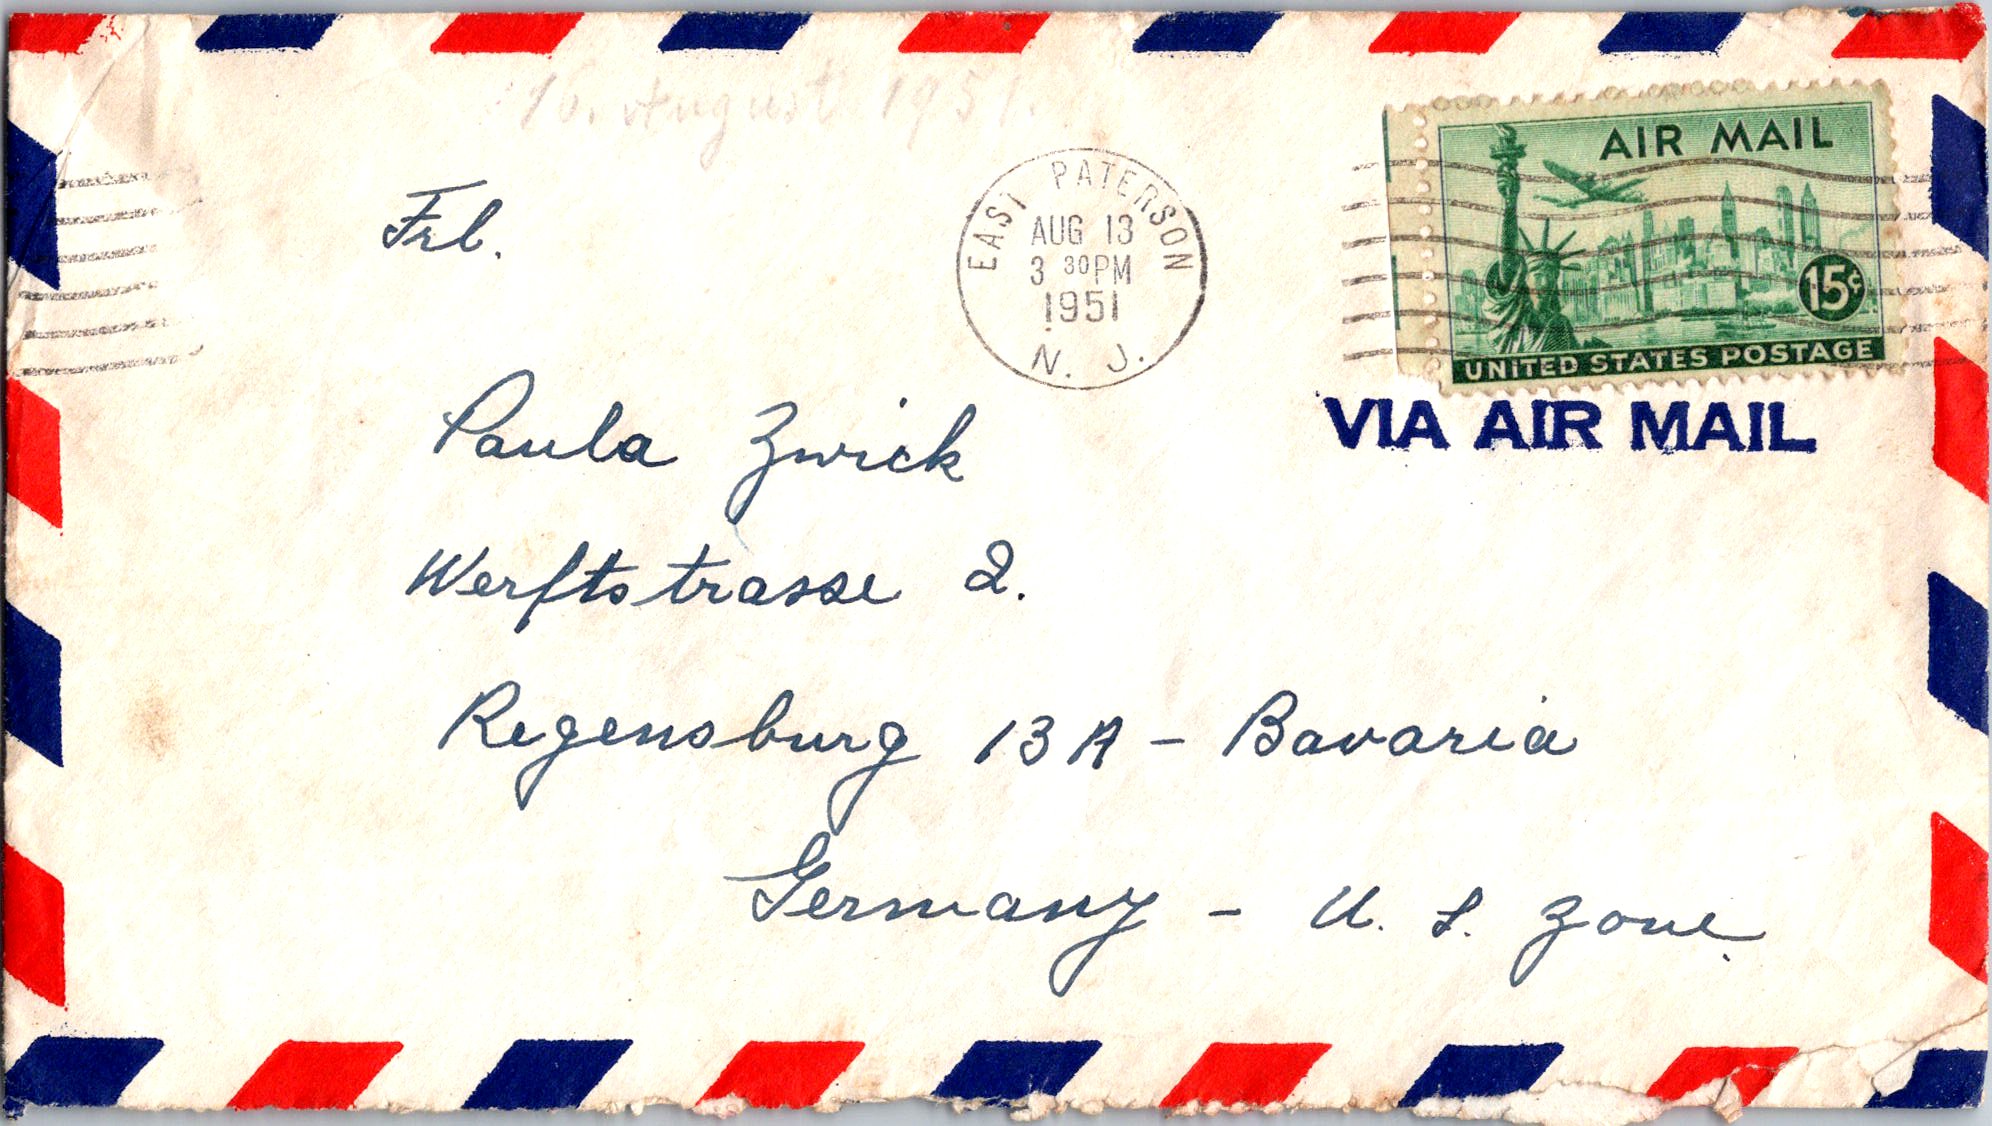 16. August 1951.
Frl.
EAST PATERSON
AUG 13
3 30PM
1951
N. J.
AIR MAIL
15¢
UNITED STATES POSTAGE
VIA AIR MAIL
Paula Zwick
Werftstrasse 2.
Regensburg 13A - Bavaria
Germany - U. S. Zone.